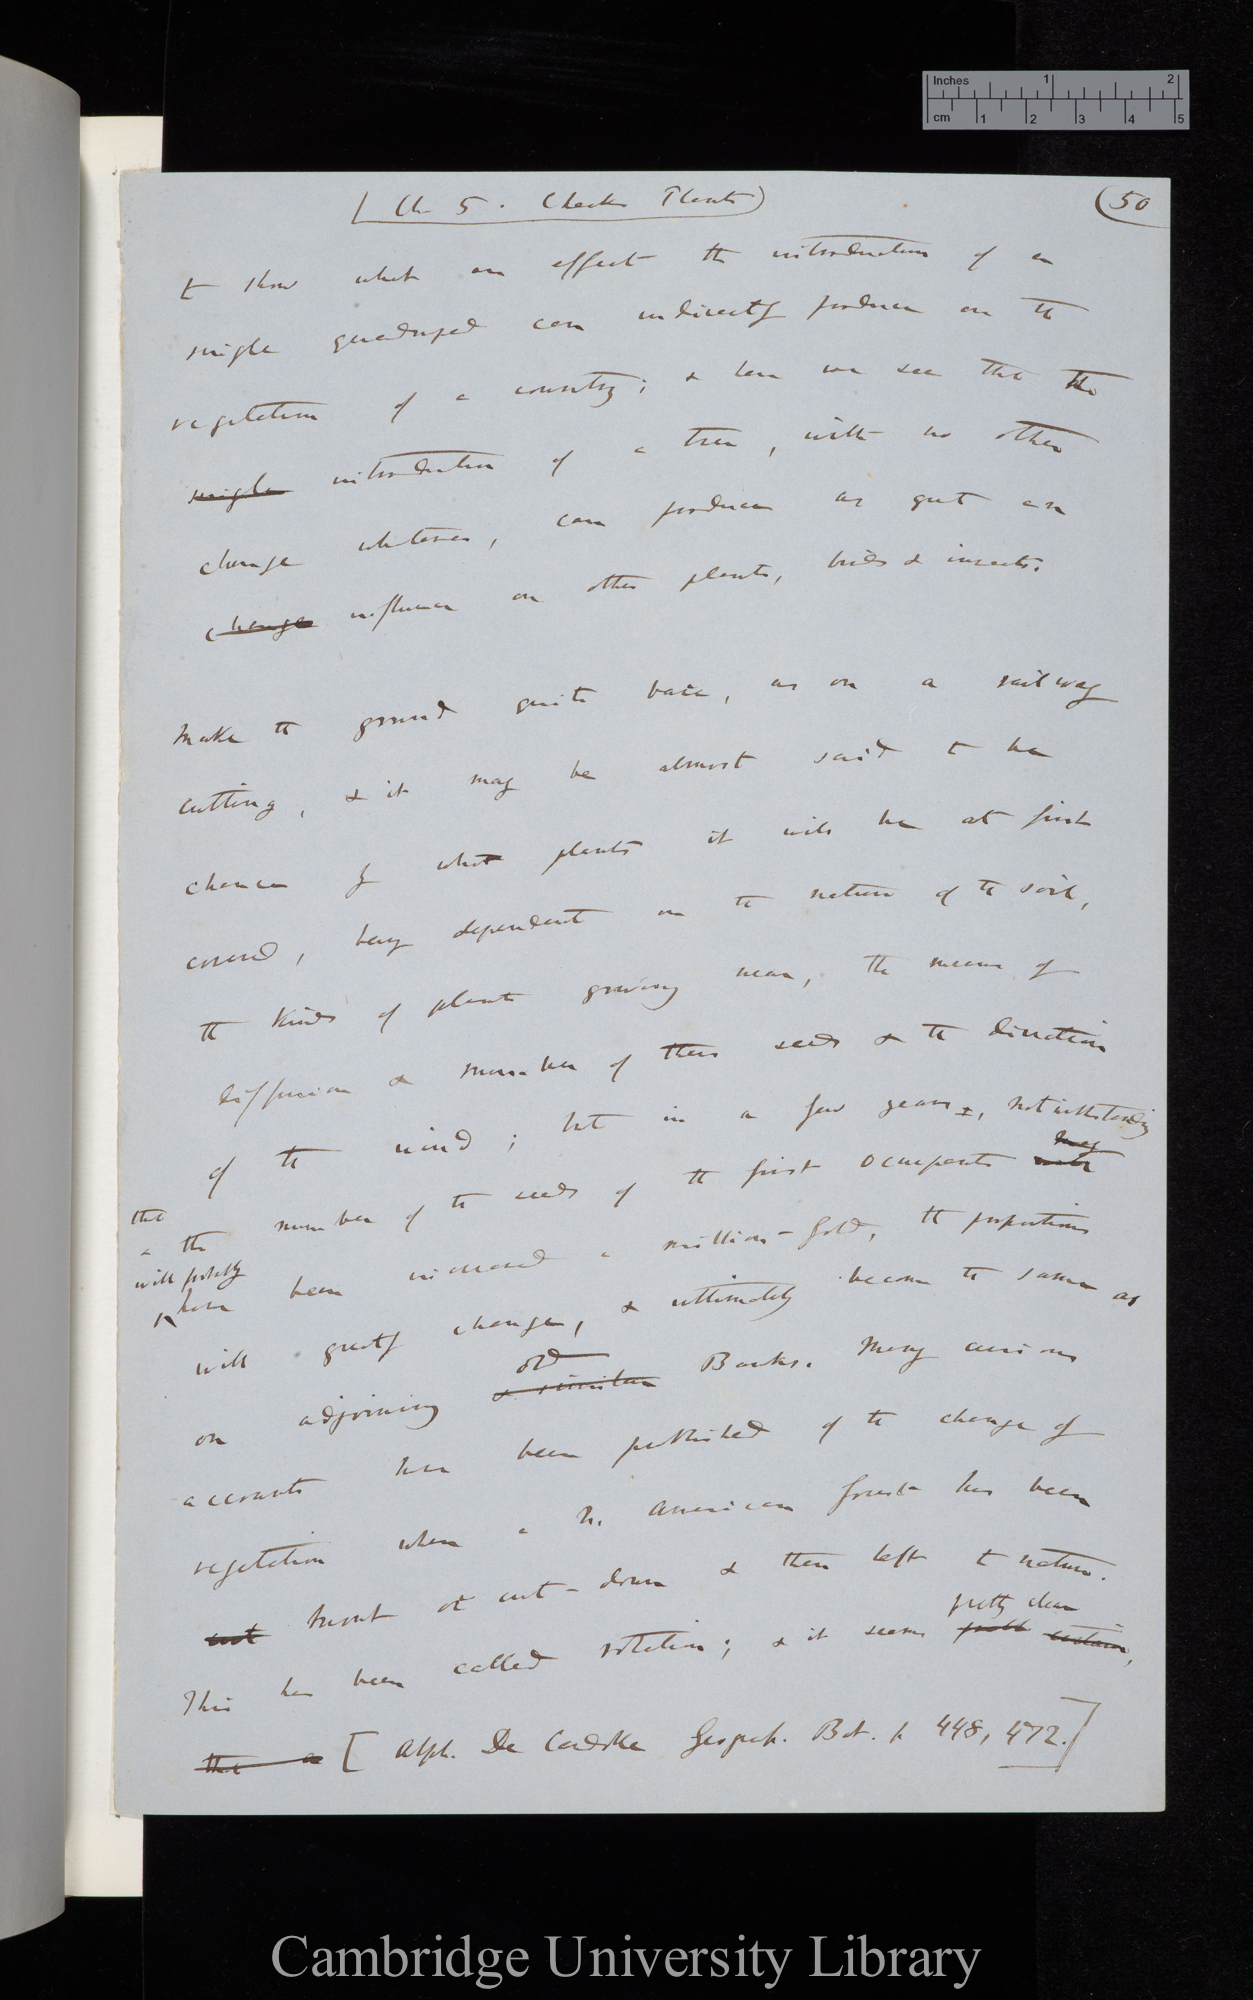 Inches 1 2
cm 1 2 3 4 5
Ch 5. Checks Plants
50
to show what an effect the introduction of a
single quadruped can indirectly produce on the
vegetation of a country; & here we see that the
single introduction of a tree, with no other
change whatever, can produce as great an
change influence on other plants, birds & insects.
Make the ground quite bare, as on a railway
cutting, & it may be almost said to be
chance by what plants it will be at first
covered, being dependent on the nature of the soil,
the kinds of plants growing near, the means of
diffusion & number of their seeds & the direction
of the wind; but in a few years, notwithstanding
may
that
the number of the seeds of the first occupants
will probably
have been increased a million-fold, the proportions
will greatly change, & ultimately become the same as
old
on adjoining & similar Banks. Many curious
accounts have been published of the change of
vegetation when a N. American forest has been
cut burnt or cut-down & then left to nature.
pretty clear
This has been called rotation; & it seems certain,
the [Alph. De Candolle Geograph. Bot. p 448, 472.]
Cambridge University Library